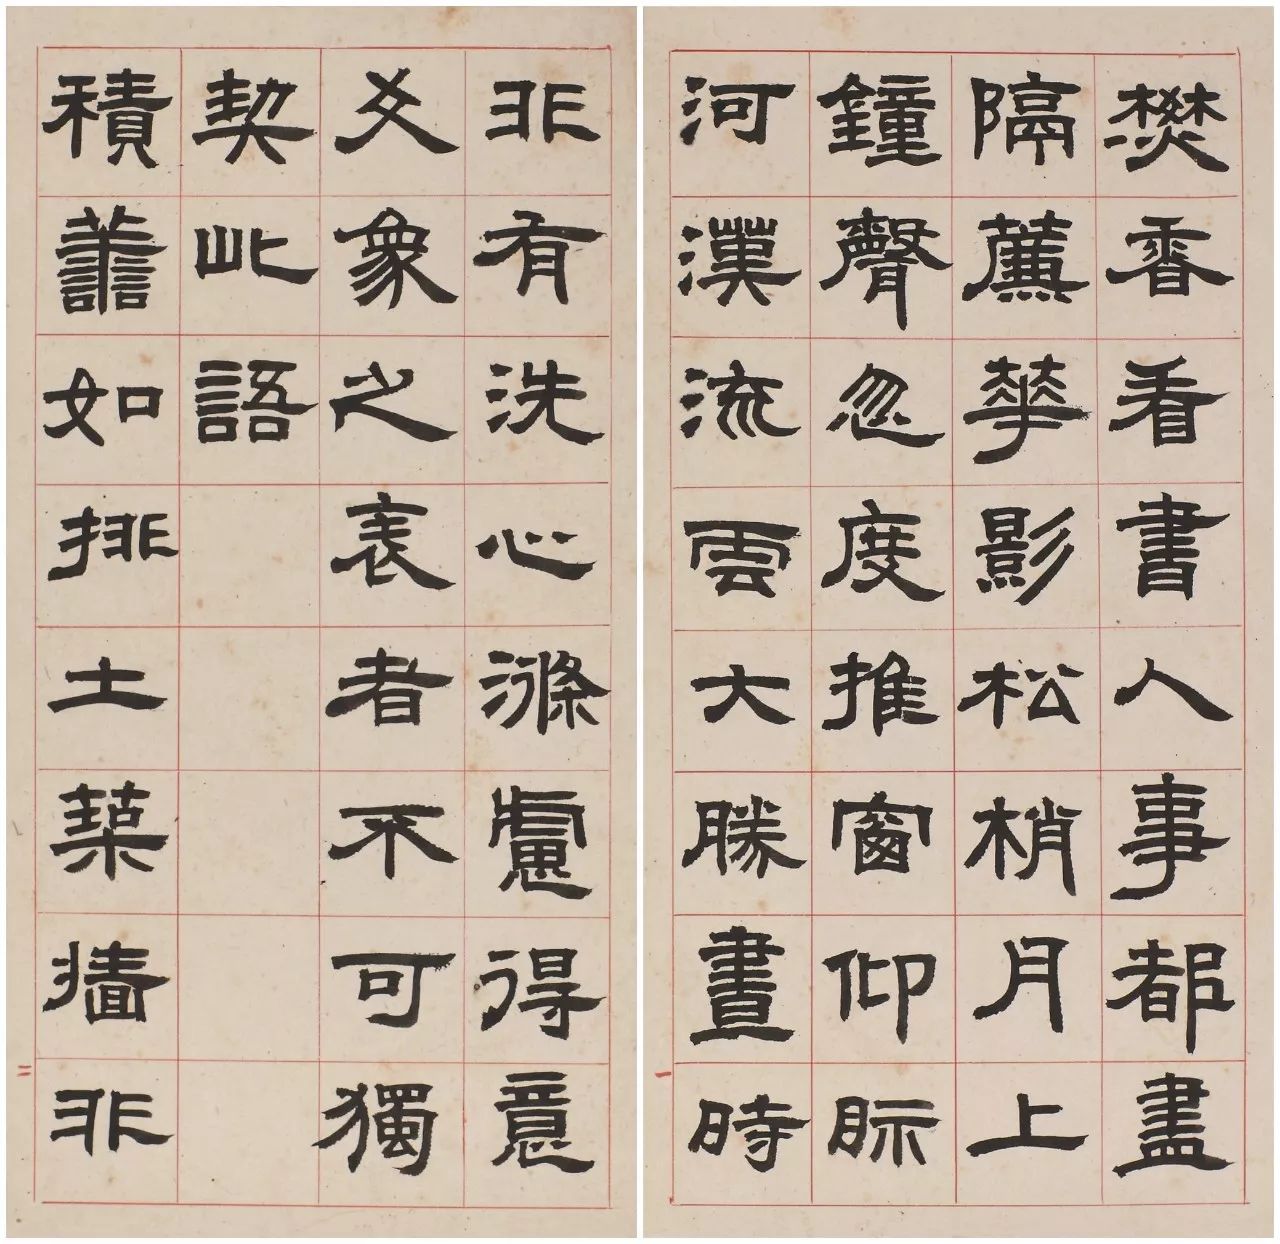 焚香看書人事都盡
隔薕華影松梢月上
鐘聲忽度推窗仰眎
河漢流雲大勝晝時
非有洗心滌慮得意
爻象之表者不可獨
契此語
積譱如排土築牆非